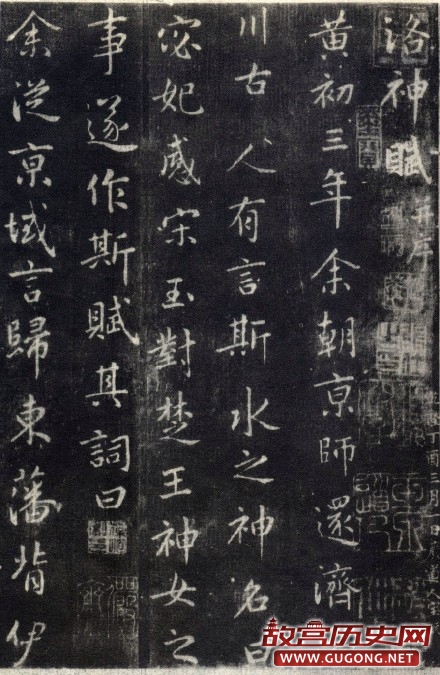 洛神賦 并序
黄初三年余朝京師還濟
川古人有言斯水之神名曰
宓妃感宋玉對楚王神女之
事遂作斯賦其詞曰
余從京域言歸東藩背伊
故宫历史网
WWW.GUGONG.NET